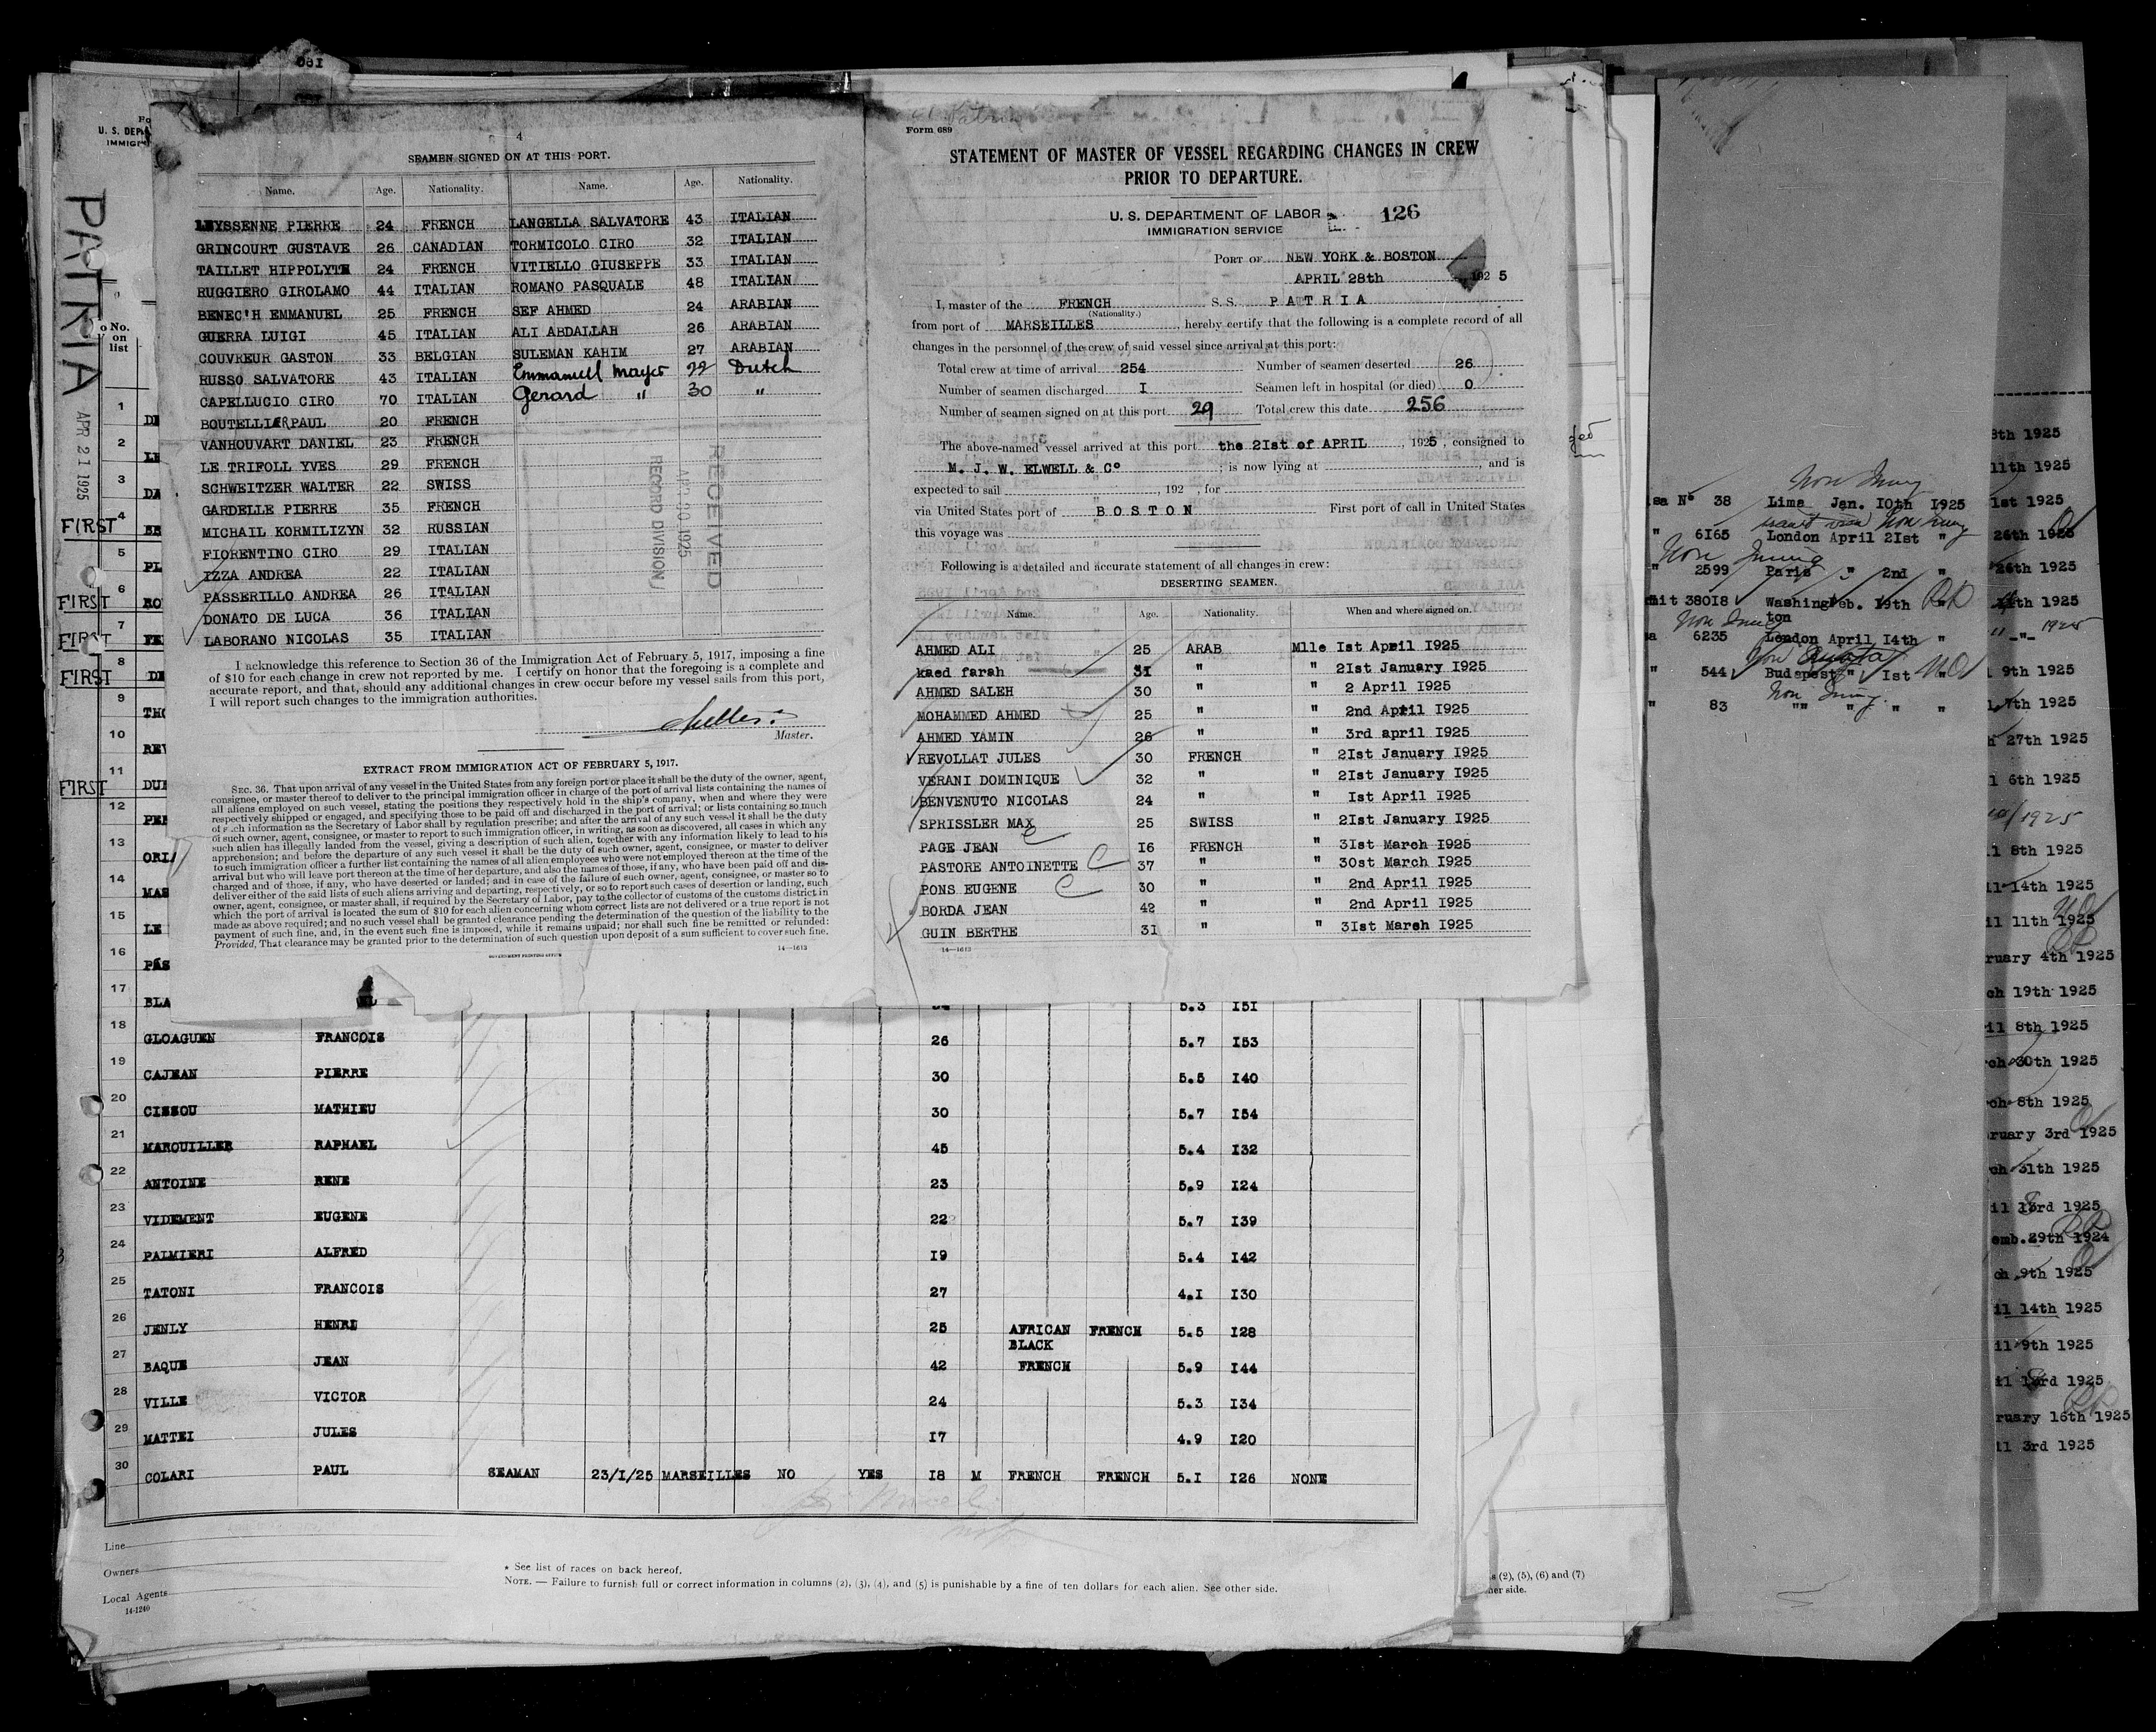 180
4
SEAMEN SIGNED ON AT THIS PORT.
Name. Age. Nationality. Name. Age. Nationality.
LEYSSENNE PIERRE 24 FRENCH LANGELLA SALVATORE 43 ITALIAN
GRINCOURT GUSTAVE 26 CANADIAN TORMICOLO CIRO 32 ITALIAN
TAILLET HIPPOLYTE 24 FRENCH VITIELLO GIUSEPPE 33 ITALIAN
RUGGIERO GIROLAMO 44 ITALIAN ROMANO PASQUALE 48 ITALIAN
BENEC'H EMMANUEL 25 FRENCH SEF AHMED 24 ARABIAN
GUERRA LUIGI 45 ITALIAN ALI ABDALLAH 26 ARABIAN
COUVREUR GASTON 33 BELGIAN SULEMAN KAHIM 27 ARABIAN
RUSSO SALVATORE 43 ITALIAN Emmanuell Mayer 22 Dutch
CAPELLUCIO CIRO 70 ITALIAN Gerard " 30 "
BOUTELLIER PAUL 20 FRENCH
VANHOUVART DANIEL 23 FRENCH
LE TRIFOLL YVES 29 FRENCH
SCHWEITZER WALTER 22 SWISS
GARDELLE PIERRE 35 FRENCH
MICHAIL KORMILIZYN 32 RUSSIAN
FIORENTINO CIRO 29 ITALIAN
IZZA ANDREA 22 ITALIAN
PASSERILLO ANDREA 26 ITALIAN
DONATO DE LUCA 36 ITALIAN
LABORANO NICOLAS 35 ITALIAN
RECEIVED
APR 30 1925
RECORD DIVISION
I acknowledge this reference to Section 36 of the Immigration Act of February 5, 1917, imposing a fine
of $10 for each change in crew not reported by me. I certify on honor that the foregoing is a complete and
accurate report, and that, should any additional changes in crew occur before my vessel sails from this port,
I will report such changes to the immigration authorities.
Master.
EXTRACT FROM IMMIGRATION ACT OF FEBRUARY 5, 1917.
SEC. 36. That upon arrival of any vessel in the United States from any foreign port or place it shall be the duty of the owner, agent,
consignee, or master thereof to deliver to the principal immigration officer in charge of the port of arrival lists containing the names of
all aliens employed on such vessel, stating the positions they respectively hold in the ship's company, when and where they were
respectively shipped or engaged, and specifying those to be paid off and discharged in the port of arrival; or lists containing so much
of such information as the Secretary of Labor shall by regulation prescribe; and after the arrival of any such vessel it shall be the duty
of such owner, agent, consignee, or master to report to such immigration officer, in writing, as soon as discovered, all cases in which any
such alien has illegally landed from the vessel, giving a description of such alien, together with any information likely to lead to his
apprehension; and before the departure of any such vessel it shall be the duty of such owner, agent, consignee, or master to deliver
to such immigration officer a further list containing the names of all alien employees who were not employed thereon at the time of the
arrival but who will leave port thereon at the time of her departure, and also the names of those, if any, who have been paid off and dis-
charged and of those, if any, who have deserted or landed; and in case of the failure of such owner, agent, consignee, or master so to
deliver either of the said lists of such aliens arriving and departing, respectively, or so to report such cases of desertion or landing, such
owner, agent, consignee, or master, shall, if required by the Secretary of Labor, pay to the collector of customs of the customs district in
which the port of arrival is located the sum of $10 for each alien concerning whom correct lists are not delivered or a true report is not
made as above required; and no such vessel shall be granted clearance pending the determination of the question of the liability to the
payment of such fine, and, in the event such fine is imposed, while it remains unpaid; nor shall such fine be remitted or refunded:
Provided, That clearance may be granted prior to the determination of such question upon deposit of a sum sufficient to cover such fine.
14—1613
GOVERNMENT PRINTING OFFICE
Form 689
STATEMENT OF MASTER OF VESSEL REGARDING CHANGES IN CREW
PRIOR TO DEPARTURE.
U. S. DEPARTMENT OF LABOR
IMMIGRATION SERVICE
126
PORT OF NEW YORK & BOSTON
APRIL 28th 192 5
I, master of the FRENCH S. S. PATRIA
(Nationality.)
from port of MARSEILLES, hereby certify that the following is a complete record of all
changes in the personnel of the crew of said vessel since arrival at this port:
Total crew at time of arrival 254 Number of seamen deserted 26
Number of seamen discharged I Seamen left in hospital (or died) 0
Number of seamen signed on at this port 29 Total crew this date 256
The above-named vessel arrived at this port the 2Ist of APRIL, 1925, consigned to
M. J. W. ELWELL & C°; is now lying at , and is
expected to sail , 192 , for
via United States port of BOSTON First port of call in United States
this voyage was
Following is a detailed and accurate statement of all changes in crew:
DESERTING SEAMEN.
Name. Age. Nationality. When and where signed on.
AHMED ALI 25 ARAB Mlle Ist April I925
kaed farah 31 " " 2Ist January I925
AHMED SALEH 30 " " 2 April I925
MOHAMMED AHMED 25 " " 2nd April I925
AHMED YAMIN 26 " " 3rd april I925
REVOLLAT JULES 30 FRENCH " 2Ist January I925
VERANI DOMINIQUE 32 " " 2Ist January I925
BENVENUTO NICOLAS 24 " " Ist April I925
SPRISSLER MAX 25 SWISS " 2Ist January I925
PAGE JEAN I6 FRENCH " 3Ist March I925
PASTORE ANTOINETTE 37 " " 30st March I925
PONS EUGENE 30 " " 2nd April I925
BORDA JEAN 42 " " 2nd April I925
GUIN BERTHE 31 " " 3Ist March I925
14—1613
U. S. DEPA
IMMIG
PATRIA
APR 21 1925
o No.
on
list
1
2
3
4 FIRST
5
6 FIRST
7 FIRST
8 FIRST
9
10
11 FIRST
12
13
14
15 LE
16
17 BLA 5.3 I5I
18 GLOAGUEN FRANCOIS 26 5.7 I53
19 CAJEAN PIERRE 30 5.5 I40
20 CISSOU MATHIEU 30 5.7 I54
21 MAROUILLER RAPHAEL 45 5.4 I32
22 ANTOINE RENE 23 5.9 I24
23 VIDEMENT EUGENE 22 5.7 I39
24 PALMIERI ALFRED I9 5.4 I42
25 TATONI FRANCOIS 27 4.I I30
26 JENLY HENRI 25 AFRICAN BLACK FRENCH 5.5 I28
27 BAQUE JEAN 42 FRENCH 5.9 I44
28 VILLE VICTOR 24 5.3 I34
29 MATTEI JULES I7 4.9 I20
30 COLARI PAUL SEAMAN 23/I/25 MARSEILLES NO YES I8 M FRENCH FRENCH 5.I I26 NONE
Line
Owners
Local Agents
14-1240
* See list of races on back hereof.
NOTE. — Failure to furnish full or correct information in columns (2), (3), (4), and (5) is punishable by a fine of ten dollars for each alien. See other side.
(2), (5), (6) and (7)
her side.
N° 38 Lima Jan. I0th I925
" 6I65 London April 2Ist "
" 2599 Paris " 2nd "
380I8 Washington Feb. I9th "
6235 London April I4th "
" 544 Budapest " Ist "
" 83 "" " " "
8th 1925
11th 1925
1st 1925
26th 1925
26th 1925
1925
9th 1925
7th 1925
27th 1925
6th 1925
1925
8th 1925
14th 1925
11th 1925
ruary 4th 1925
ch 19th 1925
il 8th 1925
ch 30th 1925
ch 8th 1925
ruary 3rd 1925
ch 31th 1925
il 13rd 1925
emb. 29th 1924
ch 9th 1925
il 14th 1925
il 9th 1925
il 1925
ruary 16th 1925
il 3rd 1925